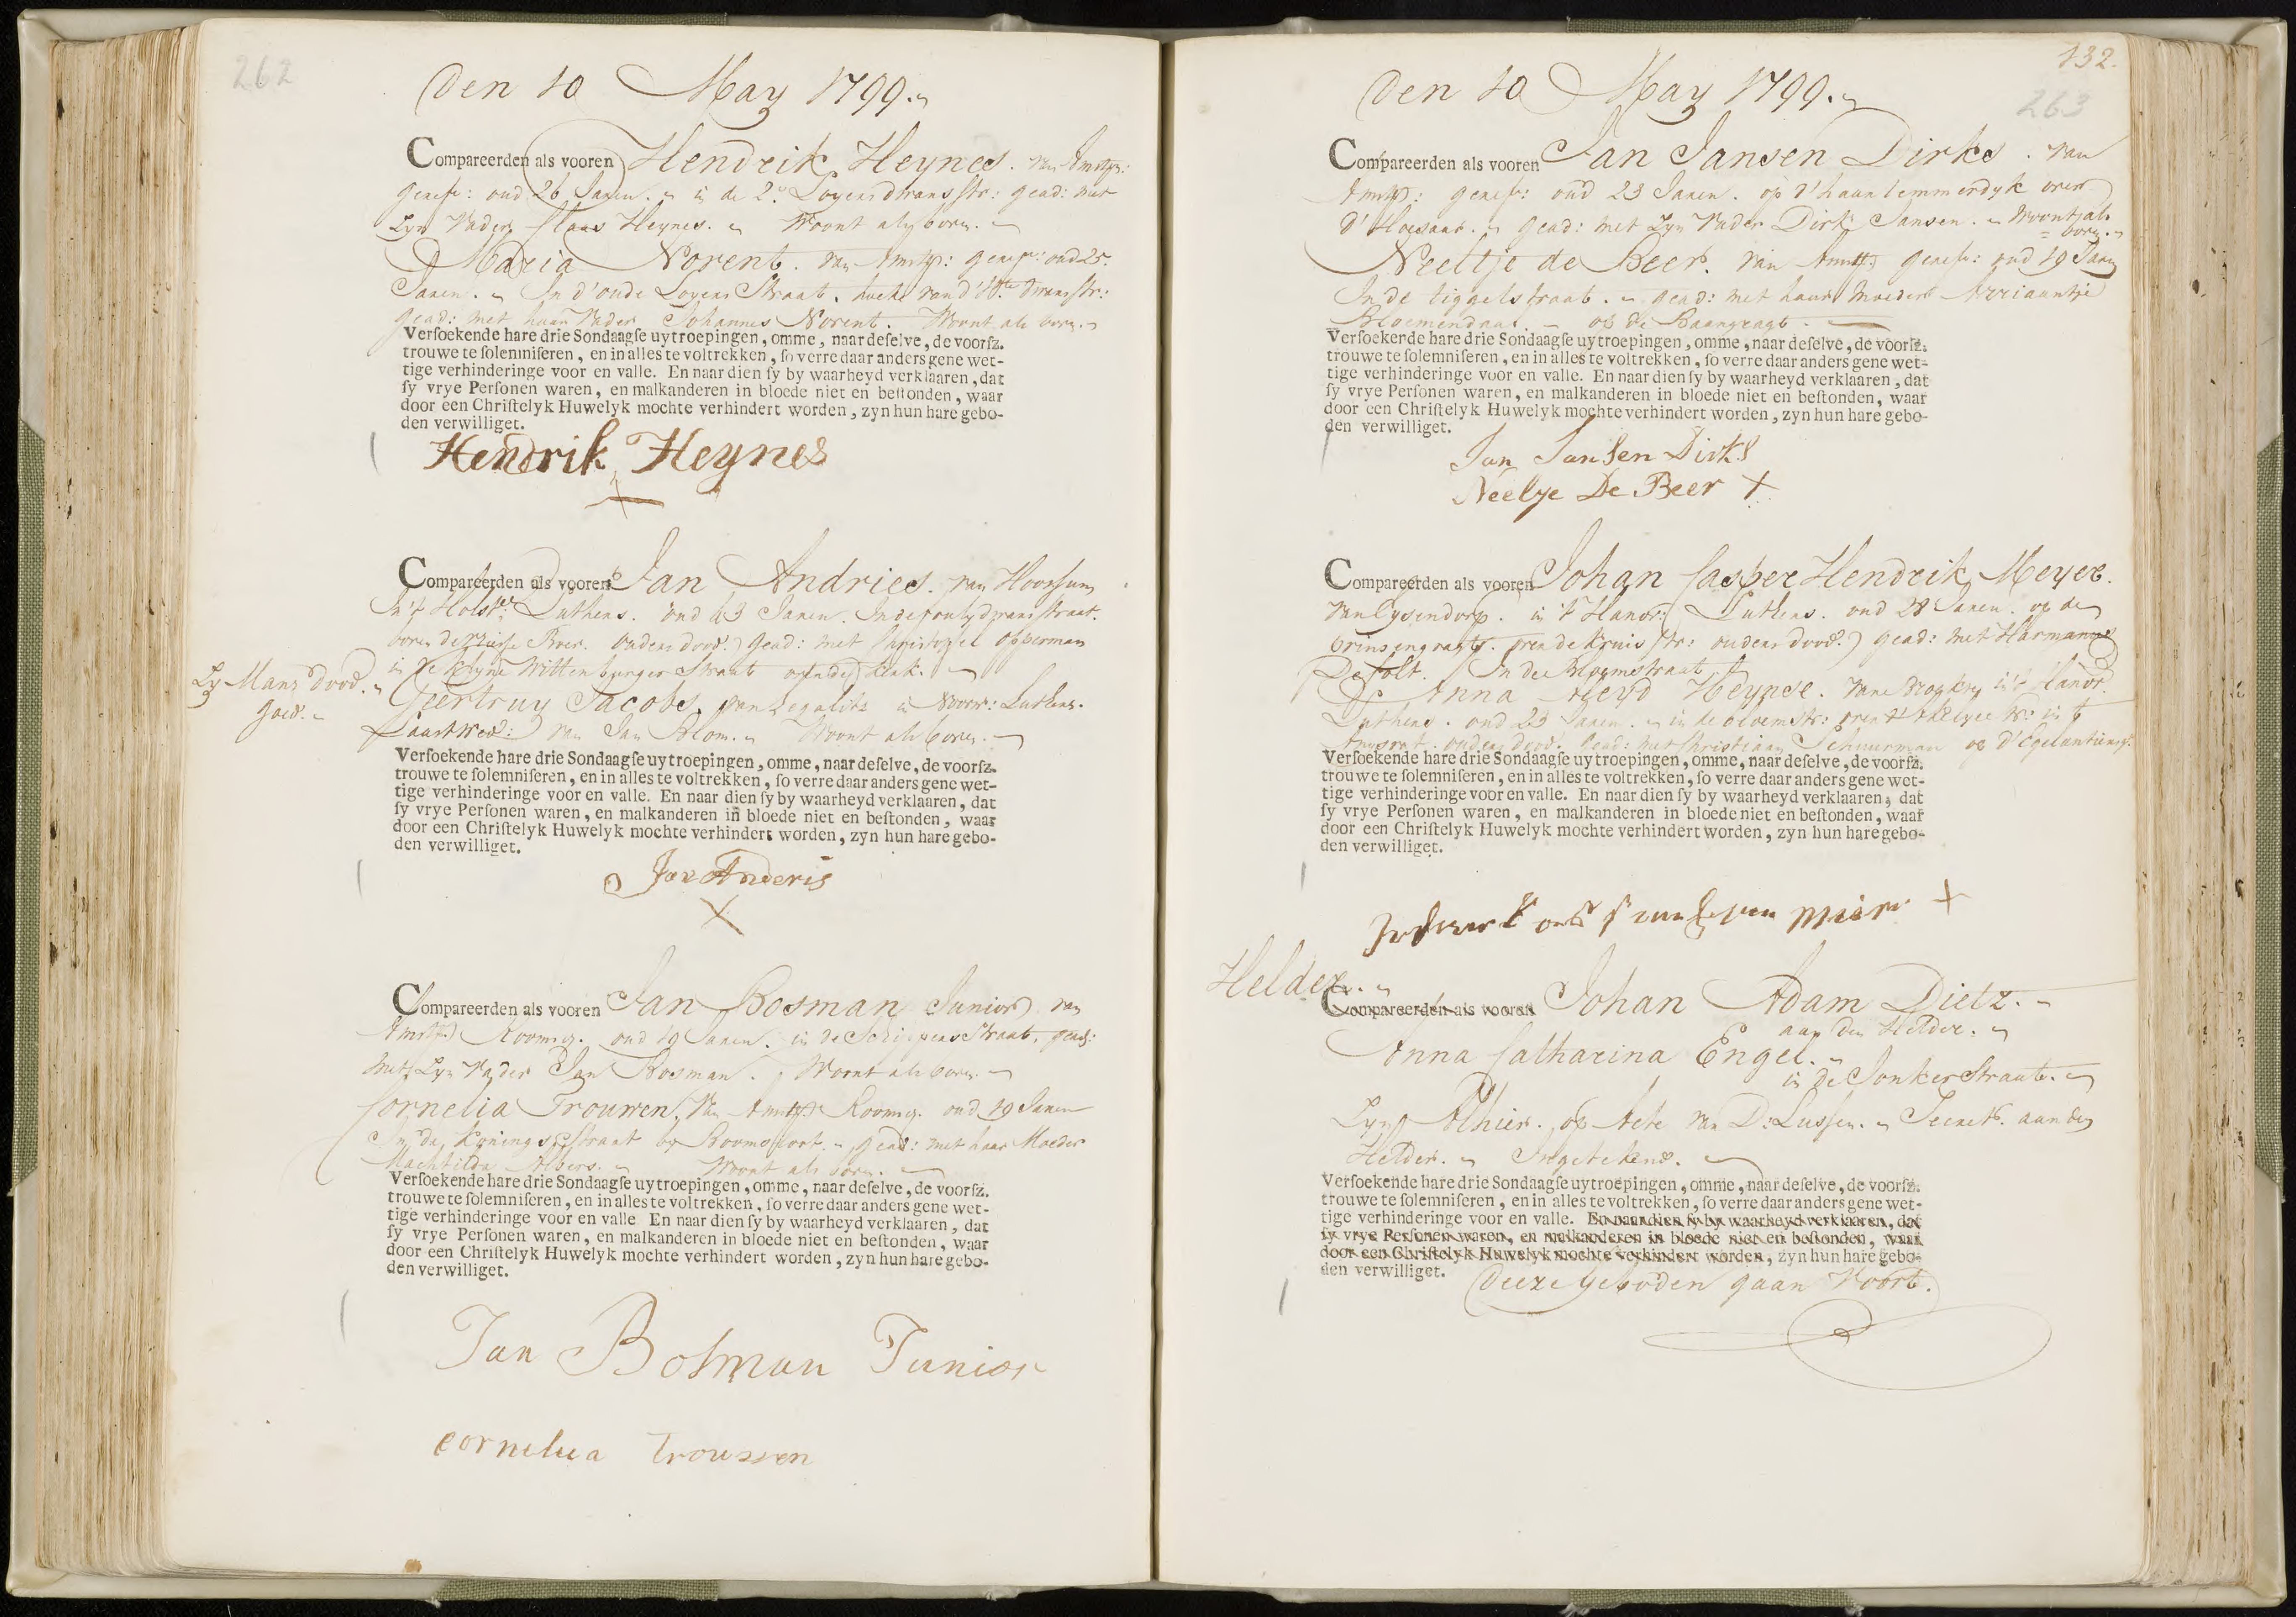 262
Den 10 May 1799.
Compareerden als vooren Hendrik Heynes. van Amst:
geref: oud 26 Jaren. in de 2e. Loyersdwarsstr: gead: met
Zyn Vader Claas Heynes. Woont als boven.
Maria Norent. van Amst: geref: oud 25.
Jaren. In d'oude Loyers Straat. hoek van d' dwarsstr:
gead: met haar Vader Johannes Norent. Woont als boven.
Verſoekende hare drie Sondaagſe uytroepingen, omme, naar deſelve, de voorſz.
trouwe te ſolemniſeren, en in alles te voltrekken, ſo verre daar anders gene wet-
tige verhinderinge voor en valle. En naar dien ſy by waarheyd verklaaren, dat
ſy vrye Perſonen waren, en malkanderen in bloede niet en beſtonden, waar
door een Chriſtelyk Huwelyk mochte verhindert worden, zyn hun hare gebo-
den verwilliget.
Hendrik Heynes
X
Compareerden als vooren Jan Andries. van
In 't Holst: Luthers. oud 43 Jaren. In de
ouders dood. gead: met Christoffel Opperman
in de Klyne Wittenburger Straat
Zy Mans dood.
goed.
Geertruy Jacobs. van Luthers.
Laast Wed: van Jan Blom. Woont als boven.
Verſoekende hare drie Sondaagſe uytroepingen, omme, naar deſelve, de voorſz.
trouwe te ſolemniſeren, en in alles te voltrekken, ſo verre daar anders gene wet-
tige verhinderinge voor en valle. En naar dien ſy by waarheyd verklaaren, dat
ſy vrye Perſonen waren, en malkanderen in bloede niet en beſtonden, waar
door een Chriſtelyk Huwelyk mochte verhindert worden, zyn hun hare gebo-
den verwilliget.
Jan Anderis
X
Compareerden als vooren Jan Bosman Junior van
Amst: Rooms g. oud 19 Jaren. in de Schippers Straat, gead:
met Zyn Vader Jan Bosman. Woont als boven.
Cornelia Trouwen, van Amst: Rooms g. oud 19 Jaren
In de Konings Straat by Boomsloot. gead: met haar Moeder
Machtilda Albers. Woont als boven.
Verſoekende hare drie Sondaagſe uytroepingen, omme, naar deſelve, de voorſz.
trouwe te ſolemniſeren, en in alles te voltrekken, ſo verre daar anders gene wet-
tige verhinderinge voor en valle En naar dien ſy by waarheyd verklaaren, dat
ſy vrye Perſonen waren, en malkanderen in bloede niet en beſtonden, waar
door een Chriſtelyk Huwelyk mochte verhindert worden, zyn hun hare gebo-
den verwilliget.
Jan Bosman Junior
cornelia Trouwen
132.
263
Den 10 May 1799.
Compareerden als vooren Jan Jansen Dirks. van
Amst: geref: oud 23 Jaren. op d'haarlemmerdyk over
d' gead: met Zyn Vader Dirk Jansen. Woont als
boven.
Neeltje de Beer. van Amst: geref: oud 19 Jaren
In de tiggelstraat. gead: met haar Moeder Arriaantje
Bloemendaal. op de Baangragt.
Verſoekende hare drie Sondaagſe uytroepingen, omme, naar deſelve, de voorſz.
trouwe te ſolemniſeren, en in alles te voltrekken, ſo verre daar anders gene wet-
tige verhinderinge voor en valle. En naar dien ſy by waarheyd verklaaren, dat
ſy vrye Perſonen waren, en malkanderen in bloede niet en beſtonden, waar
door een Chriſtelyk Huwelyk mochte verhindert worden, zyn hun hare gebo-
den verwilliget.
Jan Jansen Dirks
Neelye De Beer X
Compareerden als vooren Johan Casper Hendrik Meyer.
van Lysendorp. in 't Hanov: Luthers. oud 28 Jaren. op de
prinsengragt. over de Kruis str: ouders dood. gead: met Harmanus
De Jolt. In de Bloemstraat.
Anna Heyne. van in 't Hanov.
Luthers. oud 23 Jaren. in de bloemstr: in 't
ouders dood. gead: met Christiaan Schuurman op d'Egelantiersgr.
Verſoekende hare drie Sondaagſe uytroepingen, omme, naar deſelve, de voorſz.
trouwe te ſolemniſeren, en in alles te voltrekken, ſo verre daar anders gene wet-
tige verhinderinge voor en valle. En naar dien ſy by waarheyd verklaaren, dat
ſy vrye Perſonen waren, en malkanderen in bloede niet en beſtonden, waar
door een Chriſtelyk Huwelyk mochte verhindert worden, zyn hun hare gebo-
den verwilliget.
X
Helder.
Compareerden als vooren Johan Adam Dietz.
aan den Helder.
Anna Catharina Engel.
in de Jonker Straat.
Zyn Alhier. op Acte van D: Lussen. Secret. aan den
Helder. Ingetekend.
Verſoekende hare drie Sondaagſe uytroepingen, omme, naar deſelve, de voorſz.
trouwe te ſolemniſeren, en in alles te voltrekken, ſo verre daar anders gene wet-
tige verhinderinge voor en valle. En naar dien ſy by waarheyd verklaaren, dat
ſy vrye Perſonen waren, en malkanderen in bloede niet en beſtonden, waar
door een Chriſtelyk Huwelyk mochte verhindert worden, zyn hun hare gebo-
den verwilliget.
Deeze geboden gaan Voort.